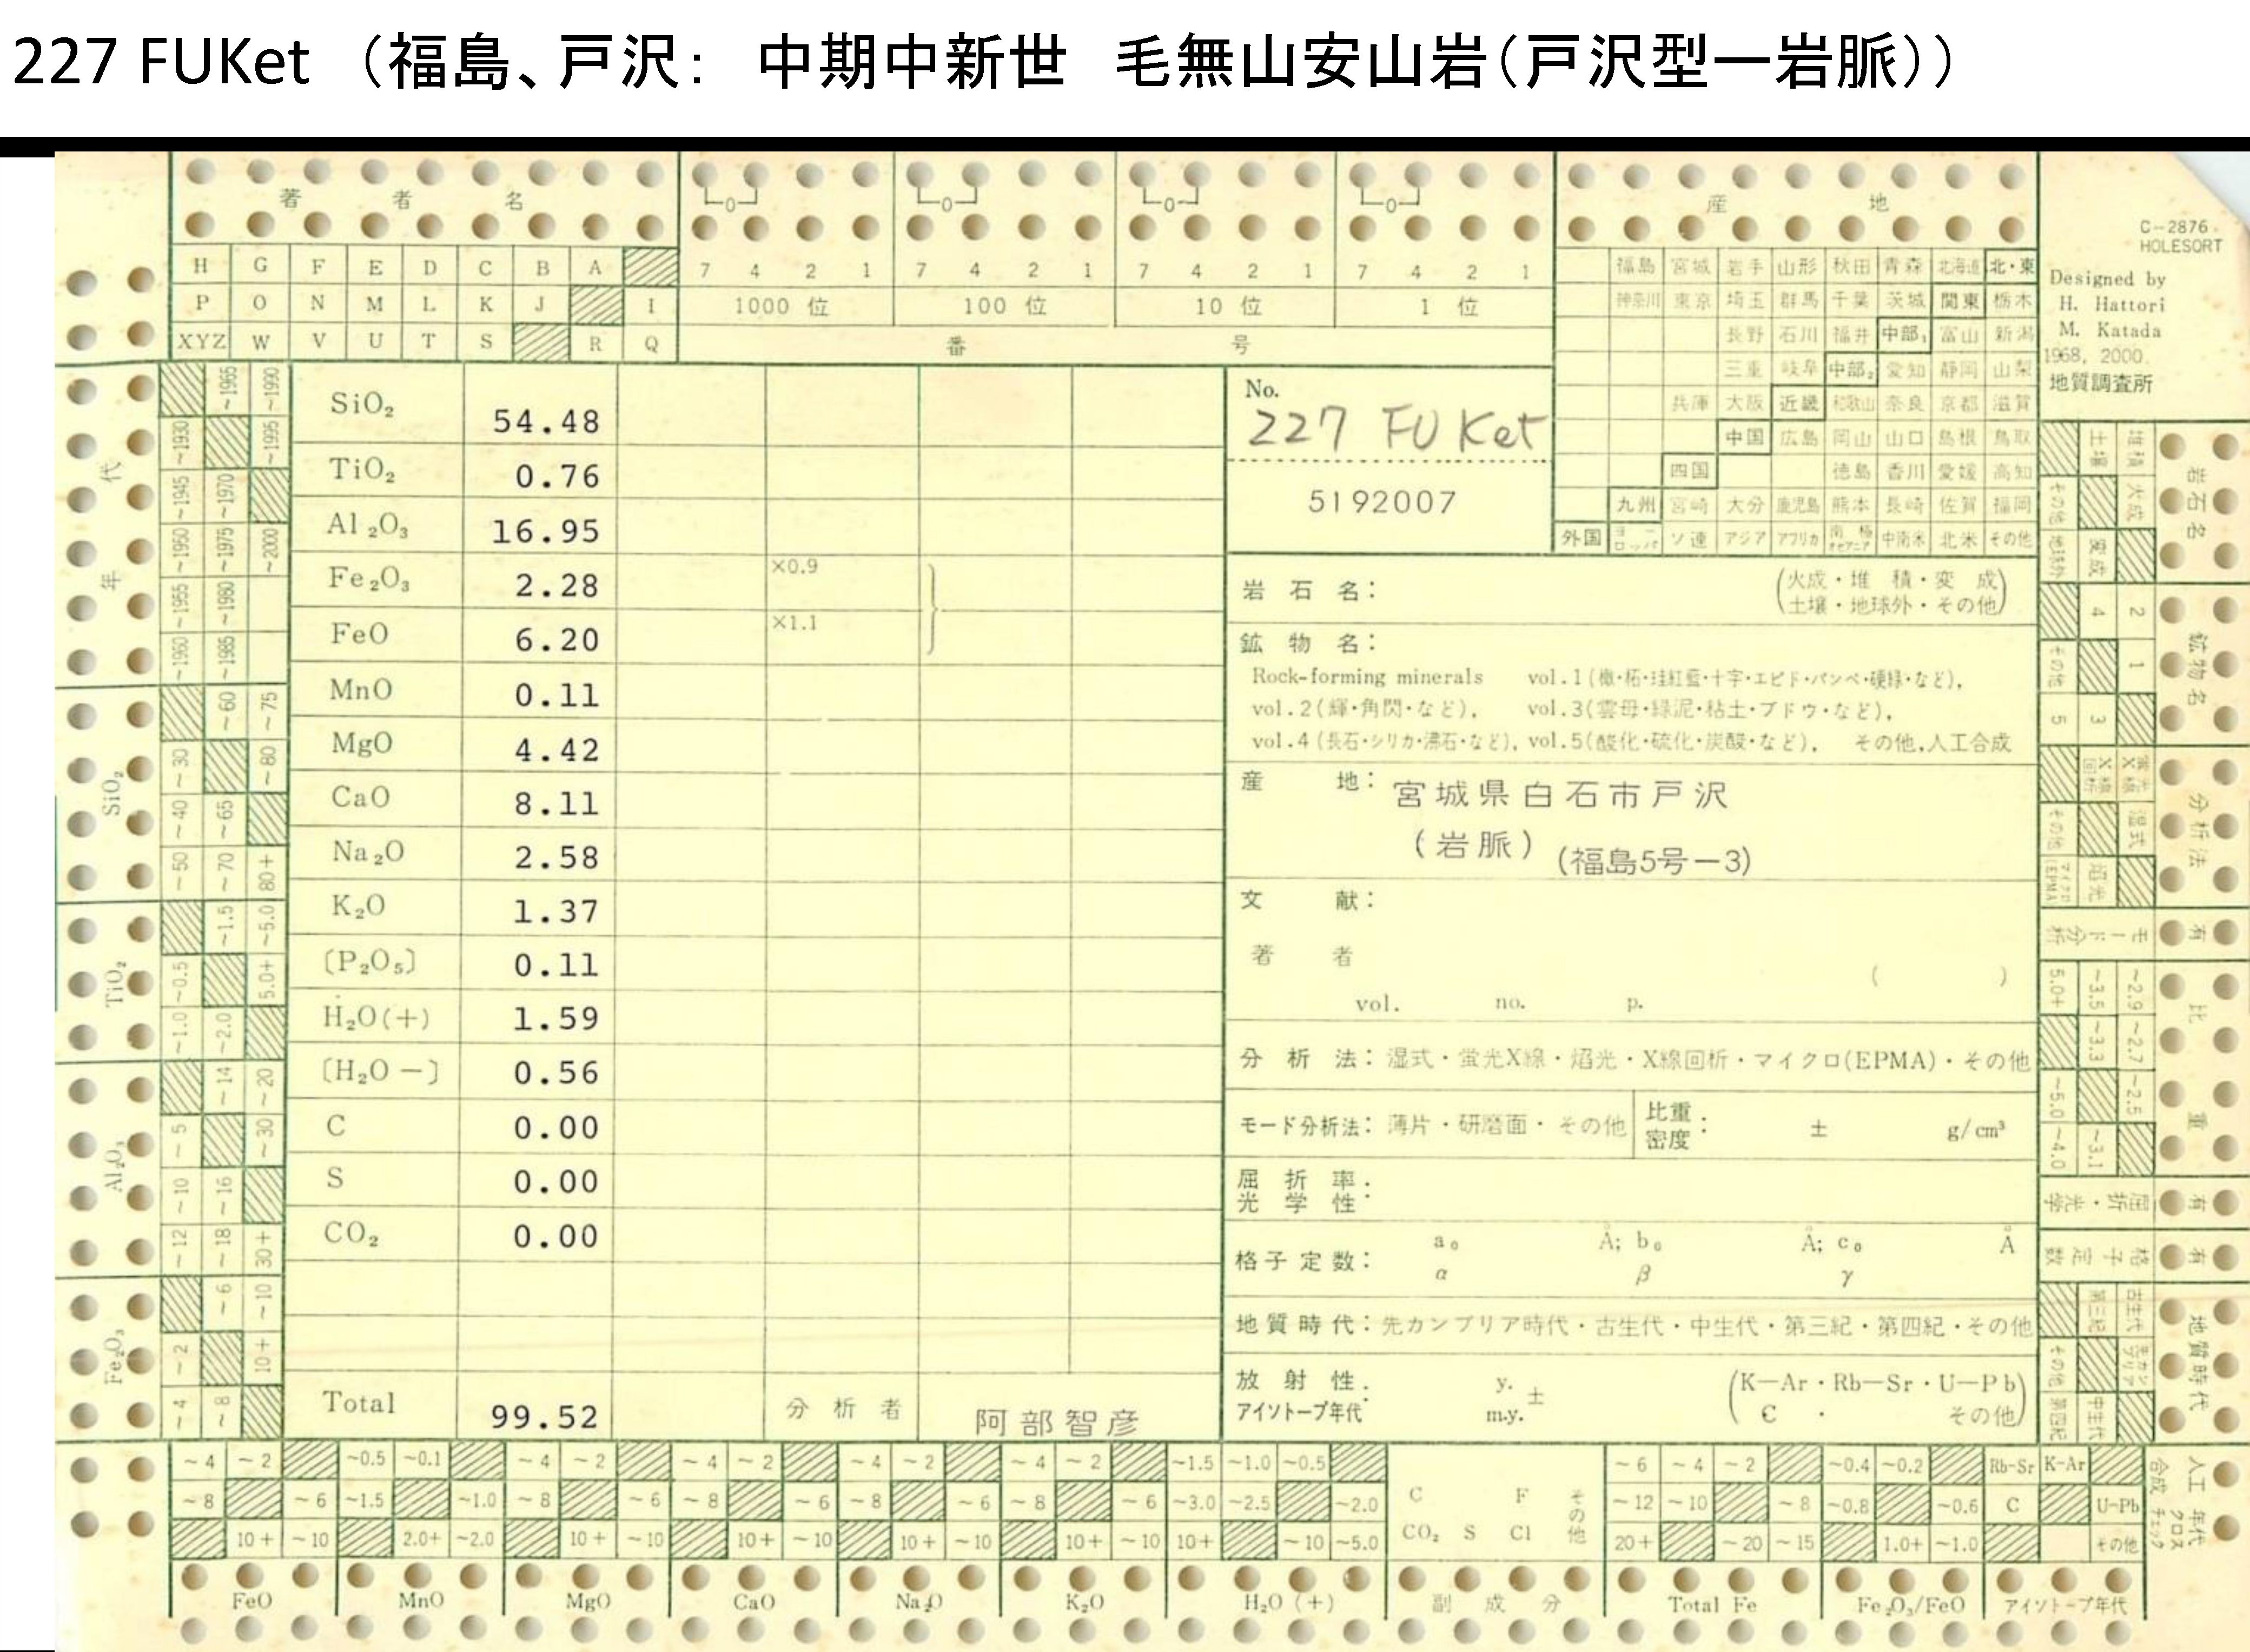 227 FUKet （福島、戸沢： 中期中新世 毛無山安山岩（戸沢型ー岩脈））
著 者 名
0 0 0 0
産 地
C-2876
HOLESORT
Designed by
H. Hattori
M. Katada
1968, 2000.
地質調査所
H G F E D C B A
P O N M L K J I
XYZ W V U T S R Q
7 4 2 1 7 4 2 1 7 4 2 1 7 4 2 1
1000 位 100 位 10 位 1 位
番 号
福島 宮城 岩手 山形 秋田 青森 北海道 北・東
神奈川 東京 埼玉 群馬 千葉 茨城 関東 栃木
長野 石川 福井 中部₁ 富山 新潟
三重 岐阜 中部₂ 愛知 静岡 山梨
兵庫 大阪 近畿 和歌山 奈良 京都 滋賀
中国 広島 岡山 山口 島根 鳥取
四国 徳島 香川 愛媛 高知
九州 宮崎 大分 鹿児島 熊本 長崎 佐賀 福岡
外国 ヨーロッパ ソ連 アジア アフリカ 中南米 北米 その他
No.
227 FUKet
5192007
SiO₂ 54.48
TiO₂ 0.76
Al₂O₃ 16.95
Fe₂O₃ 2.28 ×0.9
FeO 6.20 ×1.1
MnO 0.11
MgO 4.42
CaO 8.11
Na₂O 2.58
K₂O 1.37
〔P₂O₅〕 0.11
H₂O(+) 1.59
〔H₂O −〕 0.56
C 0.00
S 0.00
CO₂ 0.00
Total 99.52 分 析 者 阿部智彦
岩 石 名： (火成・堆 積・変 成
土壌・地球外・その他)
鉱 物 名：
Rock-forming minerals vol.1(橄・柘・珪紅藍・十字・エピド・パンペ・硬緑・など),
vol.2(輝・角閃・など), vol.3(雲母・緑泥・粘土・ブドウ・など),
vol.4(長石・シリカ・沸石・など), vol.5(酸化・硫化・炭酸・など), その他,人工合成
産 地： 宮城県白石市戸沢
(岩脈) (福島5号−3)
文 献：
著 者
( )
vol. no. p.
分 析 法：湿式・蛍光X線・焔光・X線回析・マイクロ(EPMA)・その他
モード分析法：薄片・研磨面・その他 比重・密度： ± g/cm³
屈 折 率・
光 学 性：
格子定数： a₀ Å; b₀ Å; c₀ Å
α β γ
地質時代：先カンブリア時代・古生代・中生代・第三紀・第四紀・その他
放 射 性・ y. ± (K−Ar・Rb−Sr・U−Pb
アイソトープ年代 m.y. C ・ その他)
年 代
~1965 ~1990
~1930 ~1995
~1945 ~1970
~1950 ~1975 ~2000
~1955 ~1980
~1960 ~1985
SiO₂
~60 ~75
~30 ~80
~40 ~65
~50 ~70 80+
TiO₂
~1.5 ~5.0
~0.5 5.0+
~1.0 ~2.0
Al₂O₃
~14 ~20
~5 ~30
~10 ~16
~12 ~18 30+
Fe₂O₃
~6 ~10
~2 10+
~4 ~8
岩石名
土壌 堆積
その他 火成
地球外 変成
鉱物名
4 2
その他 1
5 3
分析法
X線回析 蛍光X線
その他 湿式
マイクロ(EPMA) 焔光
モード分析 有
比 重
5.0+ ~3.5 ~2.9
~3.3 ~2.7
~5.0 ~2.5
~4.0 ~3.1
屈折・光学 有
格子定数 有
地質時代
第三紀 古生代
その他 先カンブリア
第四紀 中生代
~4 ~2 ~0.5 ~0.1 ~4 ~2 ~4 ~2 ~4 ~2 ~4 ~2 ~1.5 ~1.0 ~0.5 ~6 ~4 ~2 ~0.4 ~0.2 Rb-Sr K-Ar
~8 ~6 ~1.5 ~1.0 ~8 ~6 ~8 ~6 ~8 ~6 ~8 ~6 ~3.0 ~2.5 ~2.0 C F その他 ~12 ~10 ~8 ~0.8 ~0.6 C U-Pb
10+ ~10 2.0+ ~2.0 10+ ~10 10+ ~10 10+ ~10 10+ ~10 10+ ~10 ~5.0 CO₂ S Cl 20+ ~20 ~15 1.0+ ~1.0 その他
人工合成 年代クロスチェック
FeO MnO MgO CaO Na₂O K₂O H₂O (+) 副 成 分 Total Fe Fe₂O₃/FeO アイソトープ年代